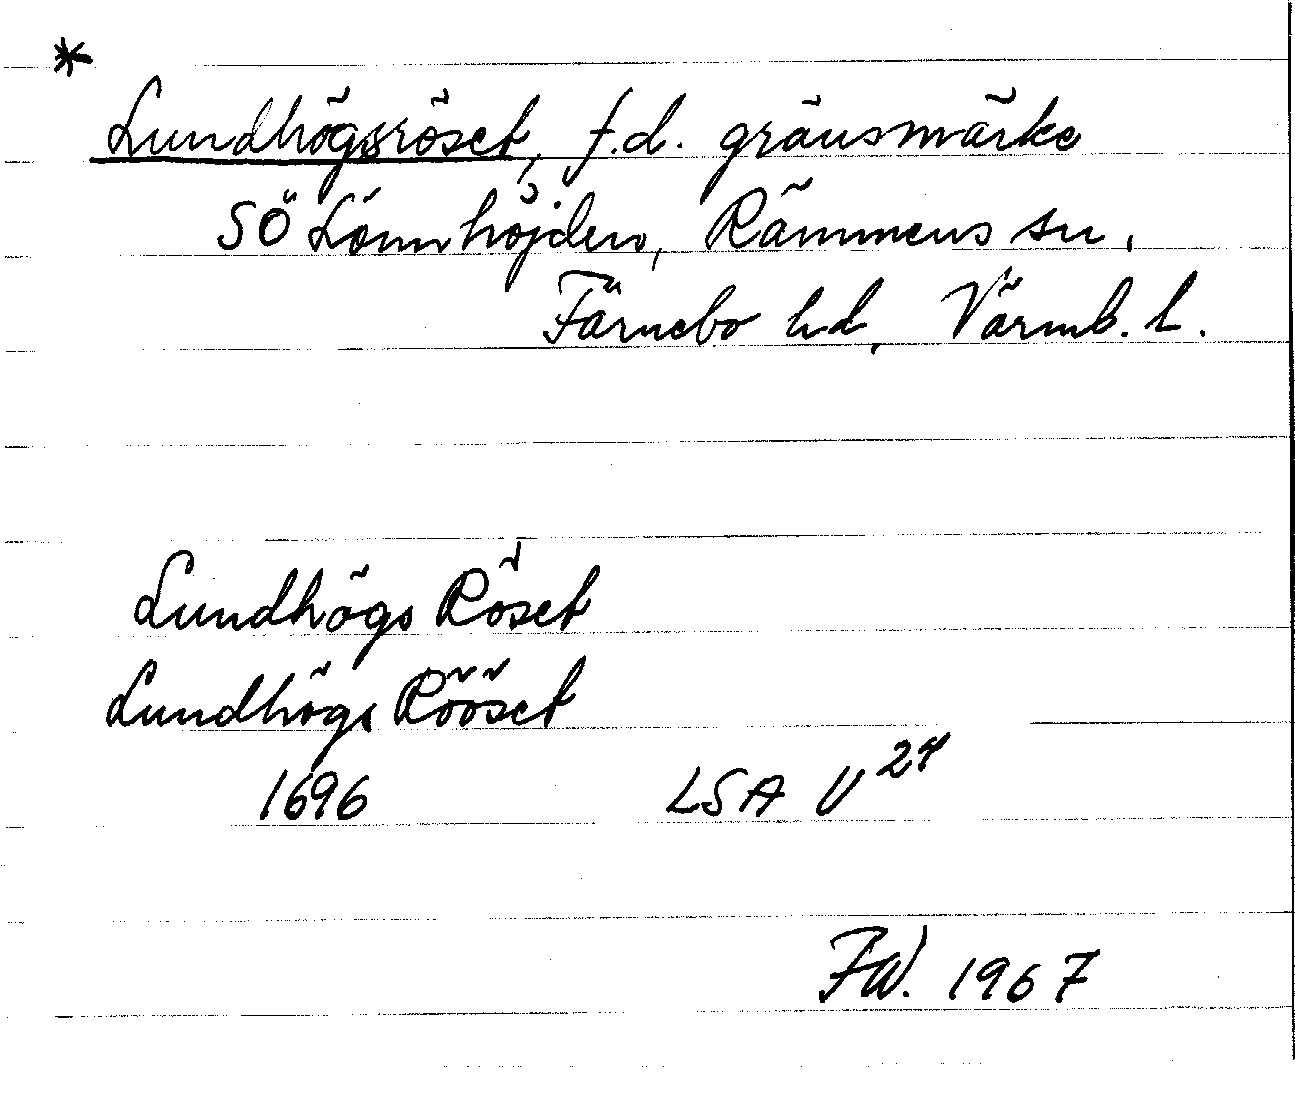 *
Lundhögsröset, f.d. gränsmärke
SÖ Lönnhöjden, Rämmens sn,
Färnebo hd, Värml. l.
Lundhögs Röset
Lundhögs Rööset
1696 LSA U 24
FW. 1967